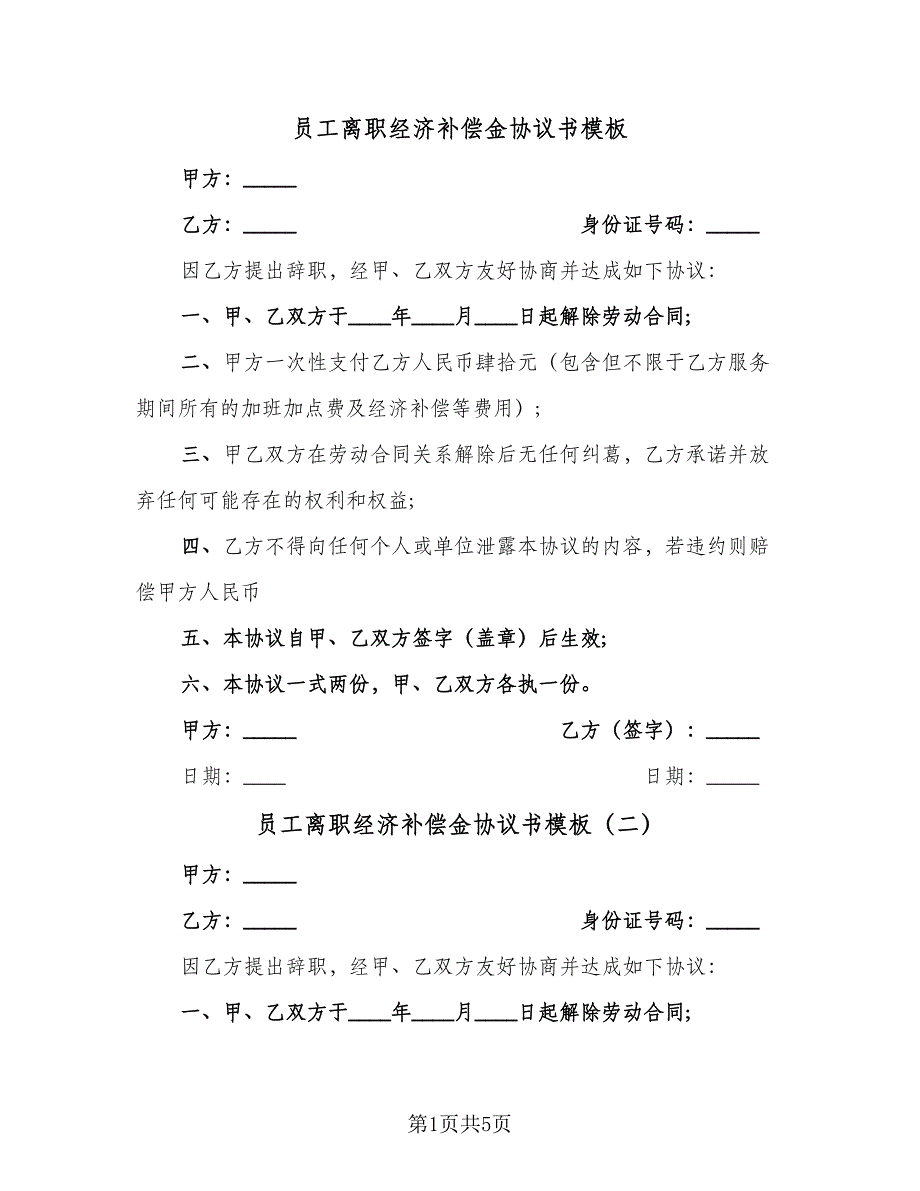 员工离职经济补偿金协议书模板
甲方：_____
乙方：_____ 身份证号码：_____
因乙方提出辞职，经甲、乙双方友好协商并达成如下协议：
一、甲、乙双方于____年____月____日起解除劳动合同；
二、甲方一次性支付乙方人民币肆拾元（包含但不限于乙方服务
期间所有的加班加点费及经济补偿等费用）；
三、甲乙双方在劳动合同关系解除后无任何纠葛，乙方承诺并放
弃任何可能存在的权利和权益；
四、乙方不得向任何个人或单位泄露本协议的内容，若违约则赔
偿甲方人民币
五、本协议自甲、乙双方签字（盖章）后生效；
六、本协议一式两份，甲、乙双方各执一份。
甲方：_____ 乙方（签字）：_____
日期：____ 日期：_____
员工离职经济补偿金协议书模板（二）
甲方：_____
乙方：_____ 身份证号码：_____
因乙方提出辞职，经甲、乙双方友好协商并达成如下协议：
一、甲、乙双方于____年____月____日起解除劳动合同；
第1页共5页